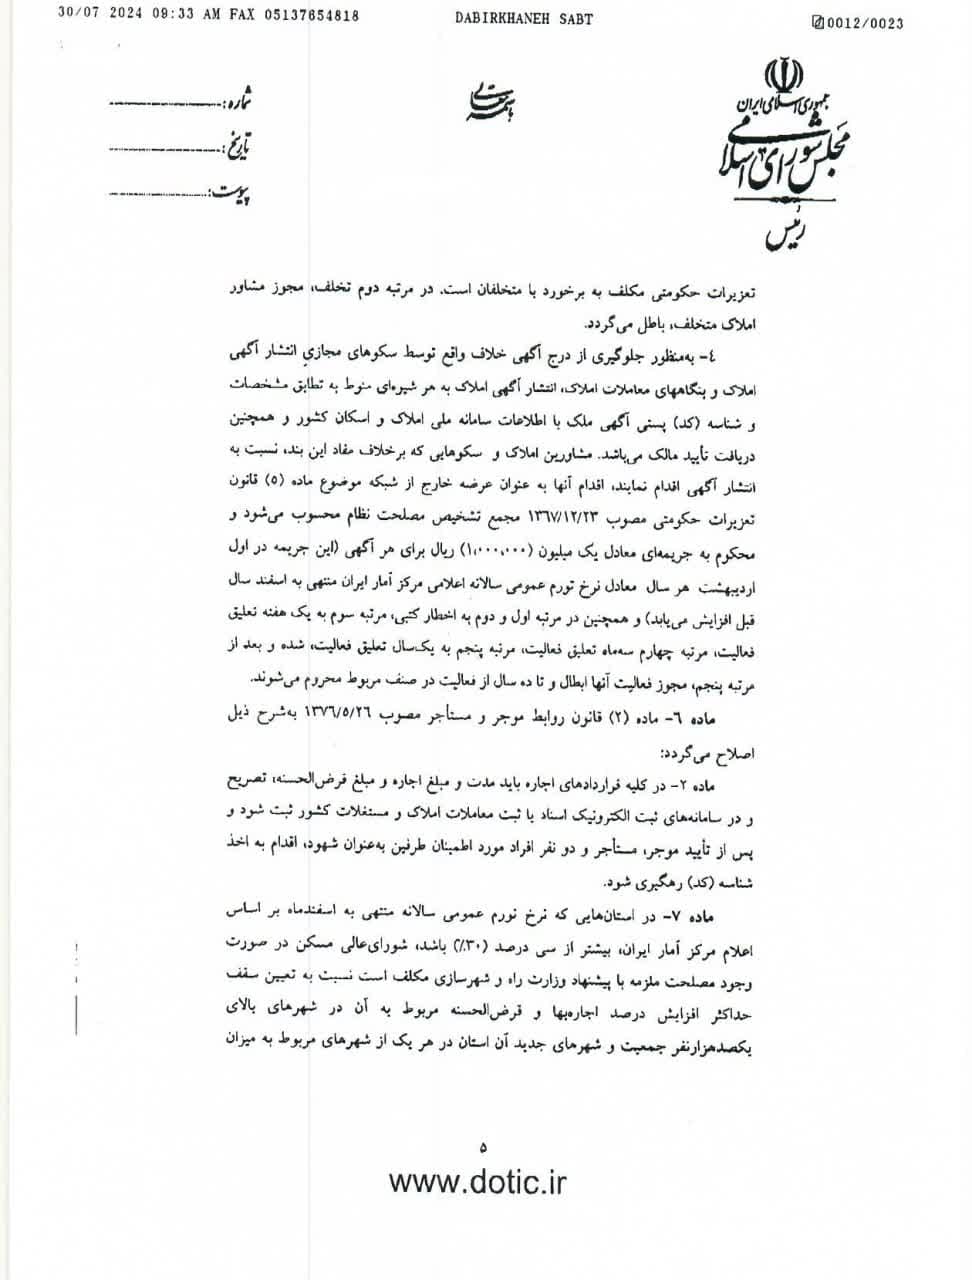 30/07 2024 09:33 AM FAX 05137654818 DABIRKHANEH SABT 0012/0023
جمهوری اسلامی ایران
مجلس شورای اسلامی
رئیس
باسمه تعالی
شماره:
تاریخ:
پیوست:
تعزیرات حکومتی مکلف به برخورد با متخلفان است. در مرتبه دوم تخلف، مجوز مشاور
املاک متخلف، باطل می‌گردد.
٤- به‌منظور جلوگیری از درج آگهی خلاف واقع توسط سکوهای مجازی انتشار آگهی
املاک و بنگاههای معاملات املاک، انتشار آگهی املاک به هر شیوه‌ای منوط به تطابق مشخصات
و شناسه (کد) پستی آگهی ملک با اطلاعات سامانه ملی املاک و اسکان کشور و همچنین
دریافت تأیید مالک می‌باشد. مشاورین املاک و سکوهایی که برخلاف مفاد این بند، نسبت به
انتشار آگهی اقدام نمایند، اقدام آنها به عنوان عرضه خارج از شبکه موضوع ماده (٥) قانون
تعزیرات حکومتی مصوب ١٣٦٧/١٢/٢٣ مجمع تشخیص مصلحت نظام محسوب می‌شود و
محکوم به جریمه‌ای معادل یک میلیون (١،٠٠٠،٠٠٠) ریال برای هر آگهی (این جریمه در اول
اردیبهشت هر سال معادل نرخ تورم عمومی سالانه اعلامی مرکز آمار ایران منتهی به اسفند سال
قبل افزایش می‌یابد) و همچنین در مرتبه اول و دوم به اخطار کتبی، مرتبه سوم به یک هفته تعلیق
فعالیت، مرتبه چهارم سه‌ماه تعلیق فعالیت، مرتبه پنجم به یک‌سال تعلیق فعالیت، شده و بعد از
مرتبه پنجم، مجوز فعالیت آنها ابطال و تا ده سال از فعالیت در صنف مربوط محروم می‌شوند.
ماده ٦- ماده (٢) قانون روابط موجر و مستأجر مصوب ١٣٧٦/٥/٢٦ به‌شرح ذیل
اصلاح می‌گردد:
ماده ٢- در کلیه قراردادهای اجاره باید مدت و مبلغ اجاره و مبلغ قرض‌الحسنه، تصریح
و در سامانه‌های ثبت الکترونیک اسناد یا ثبت معاملات املاک و مستغلات کشور ثبت شود و
پس از تأیید موجر، مستأجر و دو نفر افراد مورد اطمینان طرفین به‌عنوان شهود، اقدام به اخذ
شناسه (کد) رهگیری شود.
ماده ٧- در استان‌هایی که نرخ تورم عمومی سالانه منتهی به اسفندماه بر اساس
اعلام مرکز آمار ایران، بیشتر از سی درصد (٣٠٪) باشد، شورای‌عالی مسکن در صورت
وجود مصلحت ملزمه با پیشنهاد وزارت راه و شهرسازی مکلف است نسبت به تعیین سقف
حداکثر افزایش درصد اجاره‌بها و قرض‌الحسنه مربوط به آن در شهرهای بالای
یکصدهزارنفر جمعیت و شهرهای جدید آن استان در هر یک از شهرهای مربوط به میزان
٥
www.dotic.ir